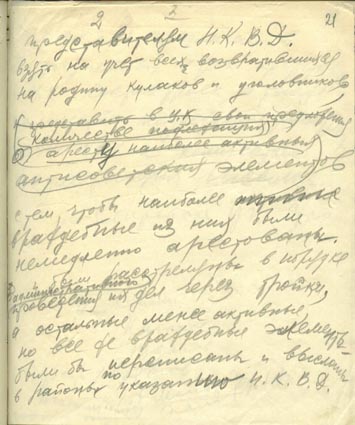 2
2
21
представителям Н.К.В.Д.
взять на учет всех возвратившихся
на родину кулаков и уголовников
представить в ЦК свои предложения
количестве подлежащих
аресту наиболее активных
антисоветских элементов
с тем, чтобы наиболее
враждебные из них были
немедленно арестованы
и были расстреляны в порядке
административного
проведения их дел через тройки,
а остальные менее активные,
но все же враждебные элементы
были бы переписаны и высланы
в районы по указанию Н.К.В.Д.